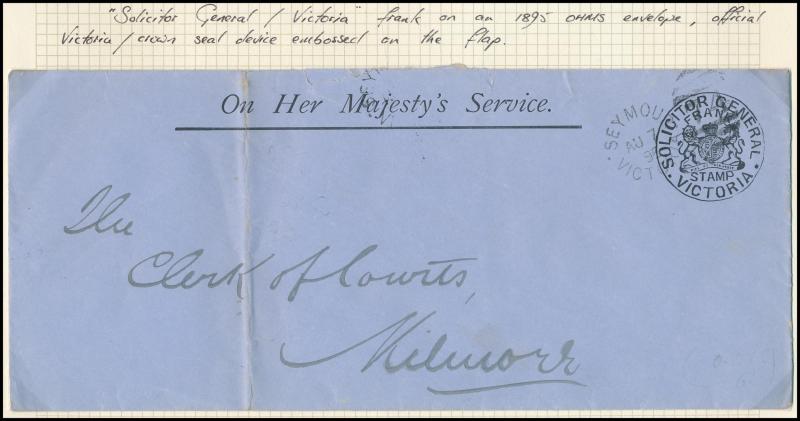 "Solicitor General / Victoria" frank on an 1895 OHMS envelope, official
Victoria / crown seal device embossed on the flap.
On Her Majesty's Service.
SEYMOU
AU 7
9
VICT
SOLICITOR GENERAL
FRANK
STAMP
VICTORIA
The
Clerk of Courts,
Kilmore